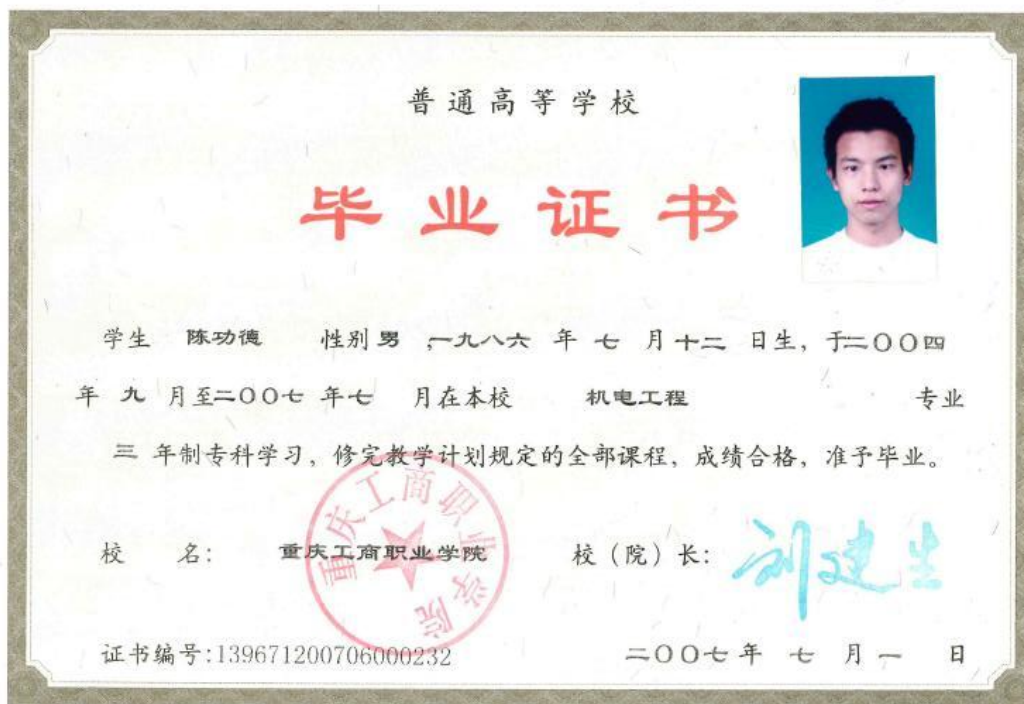 普通高等学校
毕业证书
学生 陈功德 性别 男 ,一九八六 年 七 月十二 日生, 于二〇〇四
年 九 月至二〇〇七 年七 月在本校 机电工程 专业
三 年制专科学习, 修完教学计划规定的全部课程, 成绩合格, 准予毕业。
校 名: 重庆工商职业学院 校(院)长: 刘建生
重庆工商职业学院
证书编号:139671200706000232 二〇〇七年 七 月一 日